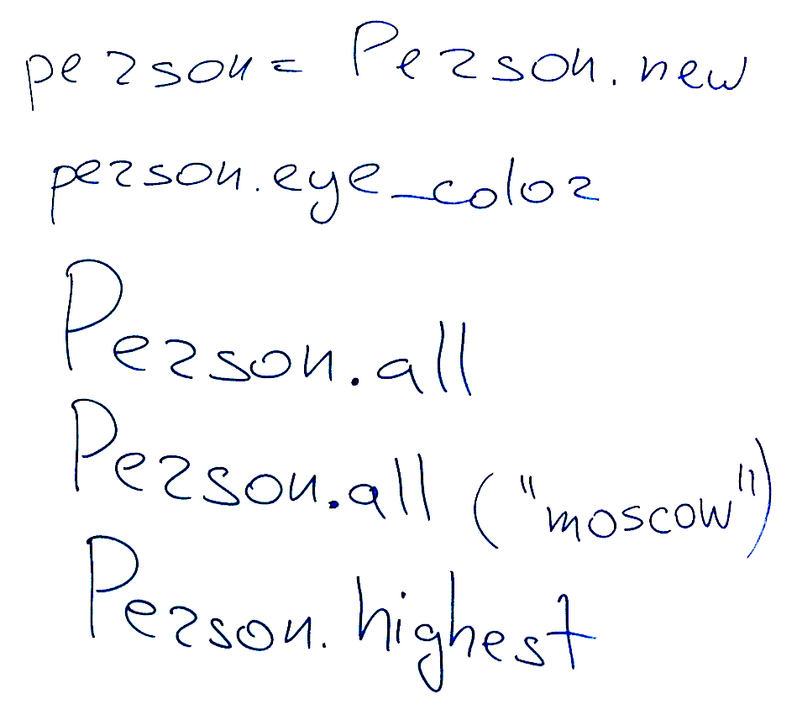 person = Person.new
person.eye_color
Person.all
Person.all ("moscow")
Person.highest